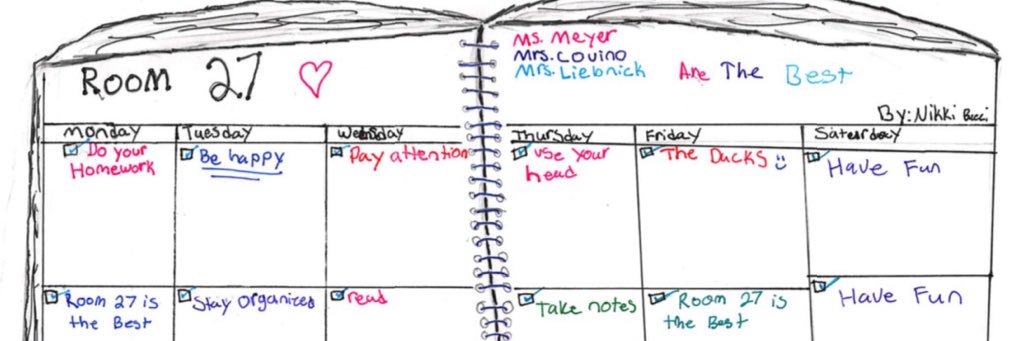 Room 27
Ms. Meyer
Mrs. Covino
Mrs. Liebnick Are The Best
By: Nikki Bucci
Monday Tuesday Wednesday Thursday Friday Saterday
Do your
Homework
Be happy
Pay attention
use your
head
The Ducks
Have Fun
Room 27 is
the Best
Stay Organized
read
Take notes
Room 27 is
the Best
Have Fun